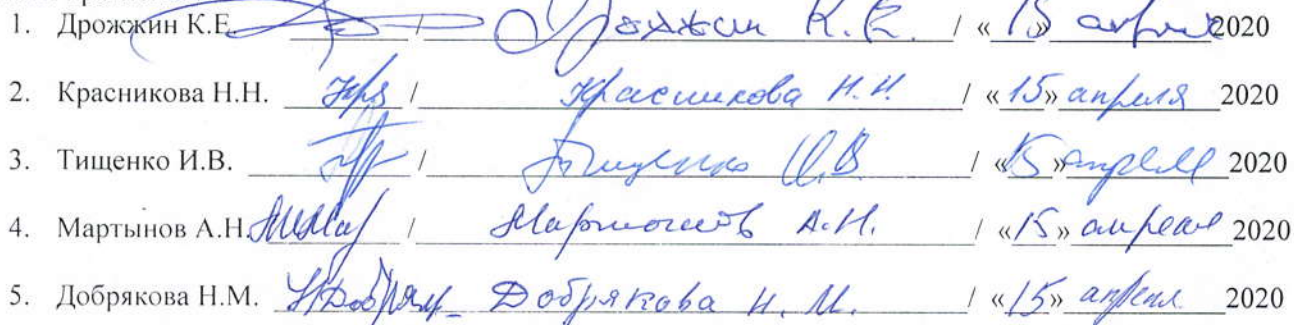 1. Дрожжин К.Е. / Дрожжин К.Е. / «15» апреля 2020
2. Красникова Н.Н. / Красникова Н.Н. / «15» апреля 2020
3. Тищенко И.В. / Тищенко И.В. / «15» апреля 2020
4. Мартынов А.Н. / Мартынов А.Н. / «15» апреля 2020
5. Добрякова Н.М. Добрякова Н.М. / «15» апреля 2020